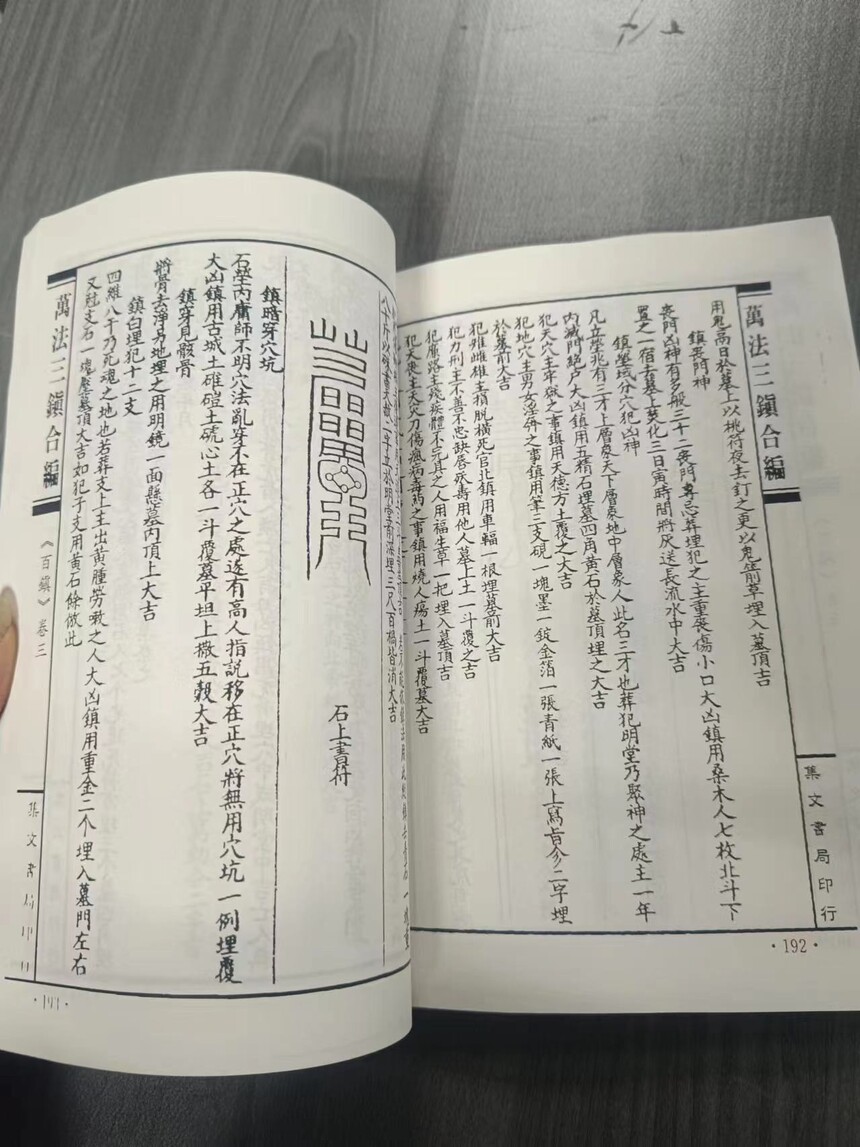 萬法三鎮合編
用鬼高日於墓上以桃符夜去釘之更以鬼箭草埋入墓頂吉
鎮喪門神
喪門凶神有多般三十二喪門專忌葬埋犯之主重喪傷小口大凶鎮用桑木人七枚北斗下
置之一宿去墓上焚化三日寅時間將灰送長流水中大吉
鎮塋域分穴犯凶神
凡立塋兆有三才上層象天下層象地中層象人此名三才也葬犯明堂乃聚神之處主一年
內滅門絕户大凶鎮用五精石埋墓四角黄石於墓頂埋之大吉
犯天穴主牢獄之事鎮用天德方土覆之大吉
犯地穴主男女淫奔之事鎮用筆二支硯一塊墨一錠金箔一張青紙一張上寫二字埋
於墓前大吉
犯雌雄主損脫橫死官鎮用車輻一根埋墓前大吉
犯力刑主不善不忠缺唇用他人墓上土一斗覆之吉
犯廉路主殘疾體不完具之人用福生草一把埋入墓頂吉
犯天喪主天火刀傷瘋病毒药之事鎮用燒人瘍土一斗覆墓大吉
集文書局印行
·192·
二字立於明堂前深埋三尺百禍皆消大吉
石上書符
鎮暗穿穴坑
石塋內庸師不明穴法亂穿不在正穴之處遂有高人指説移在正穴將無用穴坑一例埋覆
大凶鎮用古城土碓磑土硫心土各一斗覆墓平坦上撒五穀大吉
鎮穿見骸骨
將骨去淨另地埋之用明鏡一面懸墓內頂上大吉
鎮白埋犯十二支
四維八干乃死魂之地也若葬支上主出黄腫勞嗽之人大凶鎮用重金二个埋入墓門左右
又尅支石一塊壓墓頂大吉如犯子支用黄石餘倣此
萬法三鎮合編
《百鎮》卷三
集文書局印